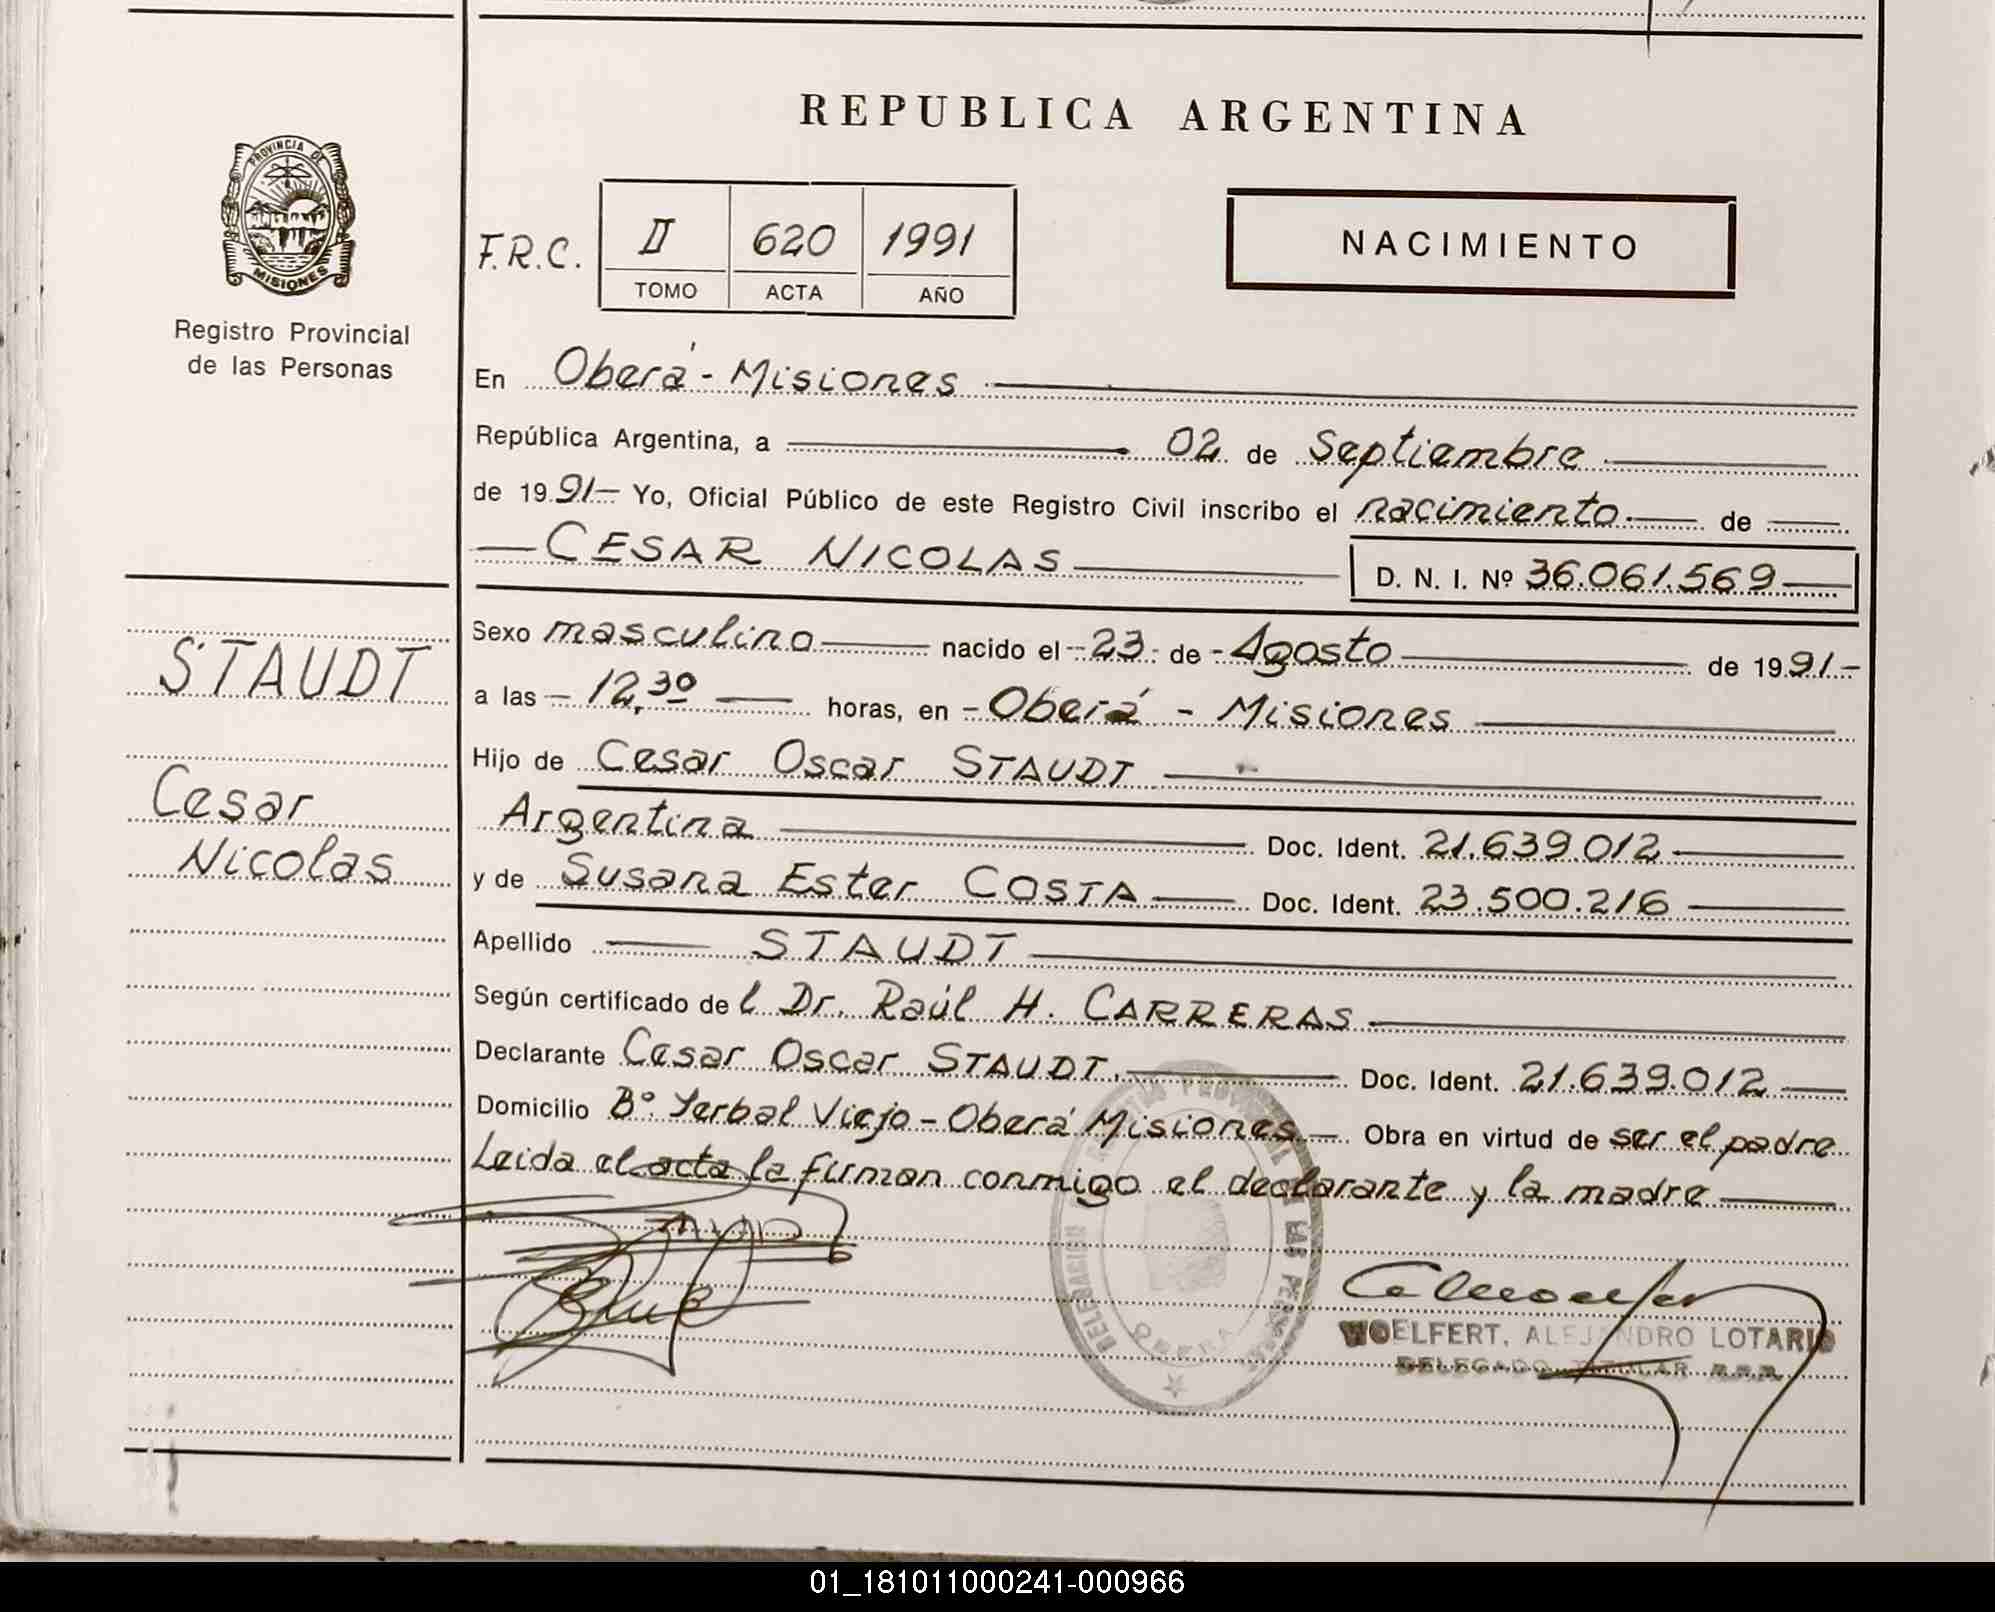 REPUBLICA ARGENTINA
PROVINCIA DE
MISIONES
Registro Provincial
de las Personas
F.R.C.
II 620 1991
TOMO ACTA AÑO
NACIMIENTO
En Oberá - Misiones
República Argentina, a 02 de Septiembre
de 1991 Yo, Oficial Público de este Registro Civil inscribo el nacimiento de
CESAR NICOLAS D. N. I. Nº 36.061.569
Sexo masculino nacido el 23 de Agosto de 1991
a las 12,30 horas, en Oberá - Misiones
Hijo de Cesar Oscar STAUDT
Argentina Doc. Ident. 21.639.012
y de Susana Ester COSTA Doc. Ident. 23.500.216
Apellido STAUDT
Según certificado del Dr. Raúl H. CARRERAS
Declarante Cesar Oscar STAUDT. Doc. Ident. 21.639.012
Domicilio Bº. Yerbal Viejo - Oberá Misiones Obra en virtud de ser el padre
Leida el acta la firman conmigo el declarante y la madre
STAUDT
Cesar
Nicolas
DELEGACION PROVINCIAL DE LAS PERSONAS
OBERA
WOELFERT, ALEJANDRO LOTARIO
DELEGADO TITULAR
01_181011000241-000966